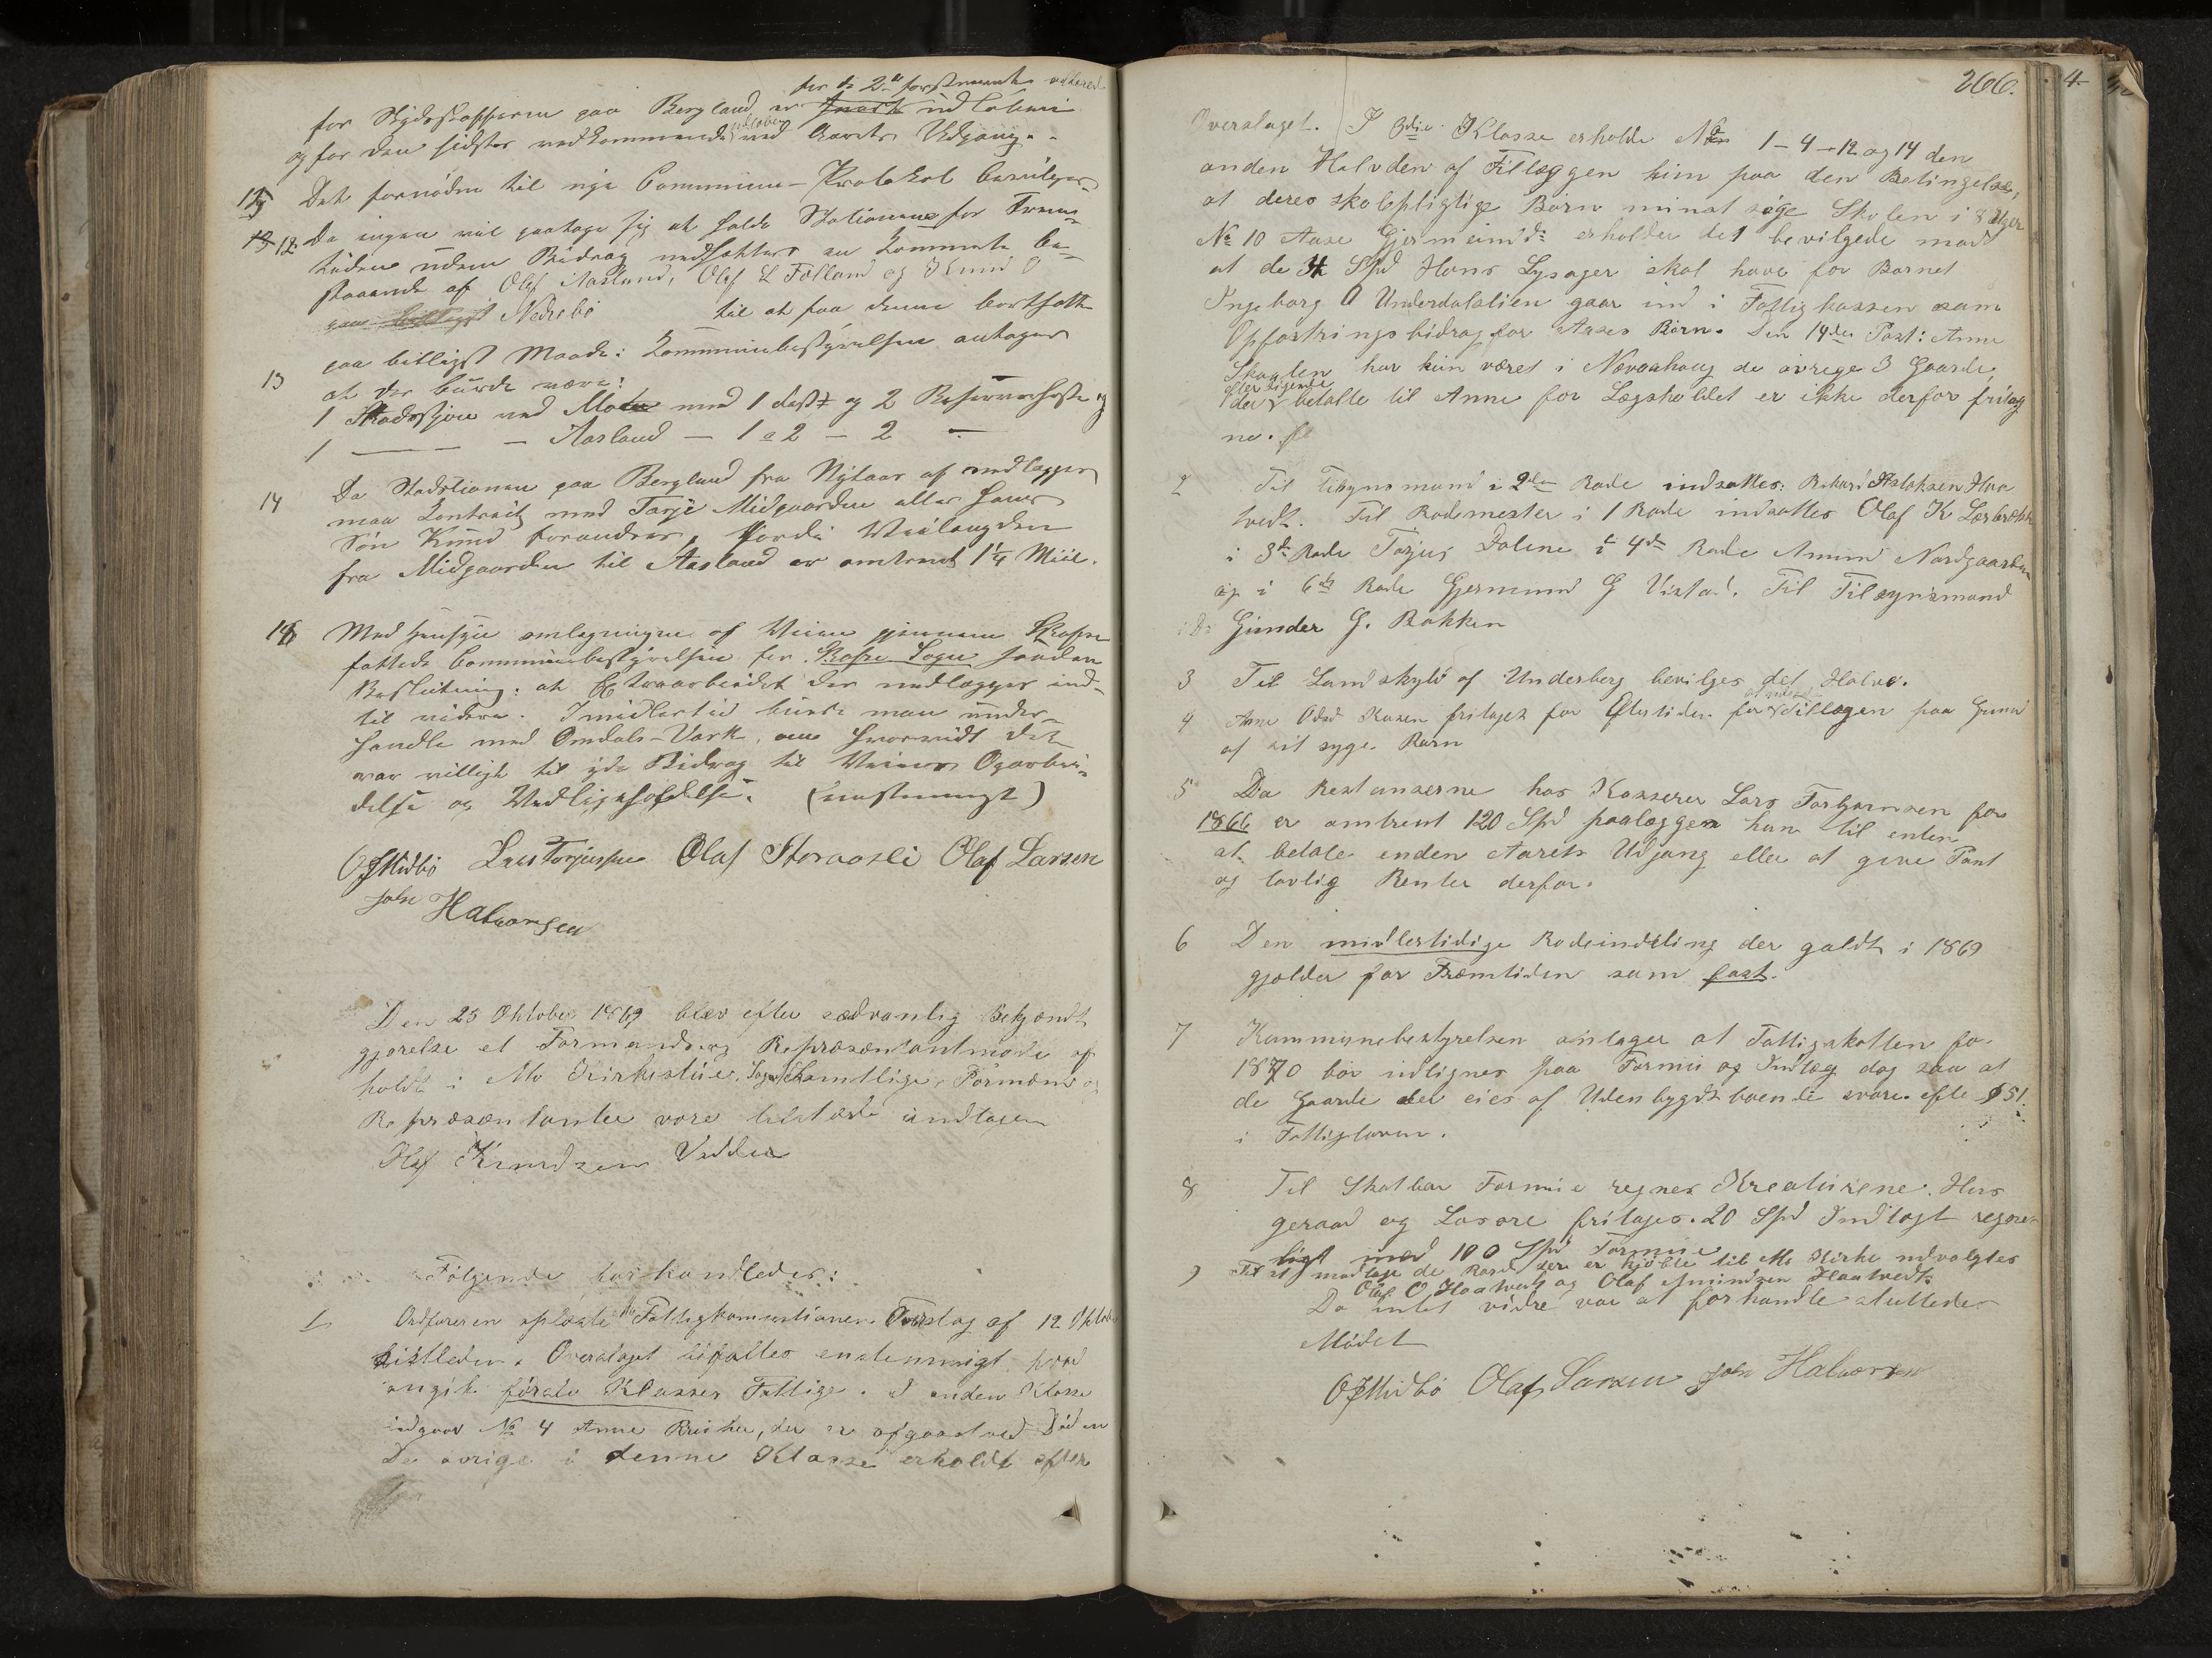 for de 2de førstnævnte vedkommende
for Skydsskafferen paa Bergland er indløben
og for den sidstes vedkommende udløber ved Aarets Udgang.
11 Det fornødne til nye Commune-Protokol bevilges
12 Da ingen vil paatage sig at holde Stationen for Frem-
tiden uden Bidrag nedsættes en Kommite be-
staaende af Olaf Aasland, Olaf L Folland og Knud O
Nedrebö til at faa denne bortsatte
paa billigst Maade.
13 Kommunebestyrelsen antager
at der burde være:
1 Skydsstation ved Mo med 1 fast og 2 Reservehefte og
1 — — Aasland — 1 a 2 — 2 —
14 Da Stationen paa Bergland fra Nytaar af nedlægges
maa Kontrakt med Tarje Midgaarden eller hans
Søn Knud forandres, fordi Veilængden
fra Midgaarden til Aasland er omtrent 1¼ Miil.
Med Hensyn omlægningen af Veien gjennem Skafse
fattede Communebestyrelsen for Skafse Sogn saadan
Beslutning: at Extraarbeidet der nedlægges ind-
til videre. Imidlertid burde man under-
handle med Omdals-Værk, om hvorvidt det
var villigt til yde Bidrag til Veiens Oparbei-
delse og Vedligeholdelse. (eenstemmigt)
O J Midbö Lars Torjussen Olaf Storaasli Olaf Larsen
John Halvorsen
Den 23 Oktober 1869 blev efter sædvanlig Bekjendt
gjørelse et Formands og Repræsentantmøde af
holdt i Mo Kirkestue. Samtlige Formænd og
Repræsentanter vare tilstæde undtagen
Olaf Knudsen Vadder
Følgende forhandledes:
1 Ordføreren oplæste Fattigkomisionens Overslag af 12 Oktober
sistleden. Overslaget bifaltes enstemmigt hvad
angik første Klasses Fattige. I anden Klasse
udgaar No 4 Anne, der er afgaaet ved Døden
De øvrige i denne Klasse erholdt efter
266.
Overslaget. I 3die Klasse erholde No 1-4-12 og 14 den
anden Halvden af Tillæggen kun paa den Betingelse,
at deres skolepligtige Børn minst søge Skolen i 8 Uger
No 10 Aase Gjermundsd: erholder det bevilgede mod
at de 4 Spd Hans Lysager skal have for Barnet
Ingeborg O Underdalslien gaar ind i Fattigkassen som
Opfostringsbidrag for Aases Børn. Den 14de Post: Anne
Skaalen har kun været i Nævaahaug de øvrege 3 Gaarde
betalte til Anne for Lægsholdet er ikke derfor fritag
ne.
2 Til Tilsynsmand i 2den Rode indsattes: Rikard Aslaksen Hoa
tvedt. Til Rodemester i 1 Rode indsattes Olaf K
i 3de Rode Torjus Dalene i 4de Rode Amund Nordgaarden
og i 6te Rode Gjermund G Vistad. Til Tilsynsmand
i Do Gunder G. Bakken
3 Til Landskyld af Underberg bevilges det Halve.
4 Anne Olsd fritages for Eftertiden for Tillægen paa Grund
af sit syge Barn
5 Da Restanserne hos Kasserer Lars Torbjørnsen for
1866 er omtrent 120 Spd paalægges han til enten
at betale inden Aarets Udgang eller at give Pant
og lovlig Renter derfor.
6 Den midlertidige Rodeinddeling der galdt i 1869
gjælder for Fremtiden som fast.
7 Kommunebestyrelsen antager at Fattigskatten for
1870 bør udlignes paa Formue og Indtæg dog saa at
de Gaarde der eies af Udenbygdsboende svare efter § 51
i Fattigloven.
8 Til Skatbar Formue regnes Kreaturene. Hus
geraad og Løsøre fritages. 20 Spd Indtægt regnes
ligt med 100 Spd Formue
9 Til at modtage de Bord der er kjøbte til Mo Kirke udvalgtes
Olaf O Hoatvedt og Olaf Amundsen Haatvedt.
Da intet vidre var at forhandle sluttedes
Mødet
O J Midbö Olaf Larsen John Halvorsen
4